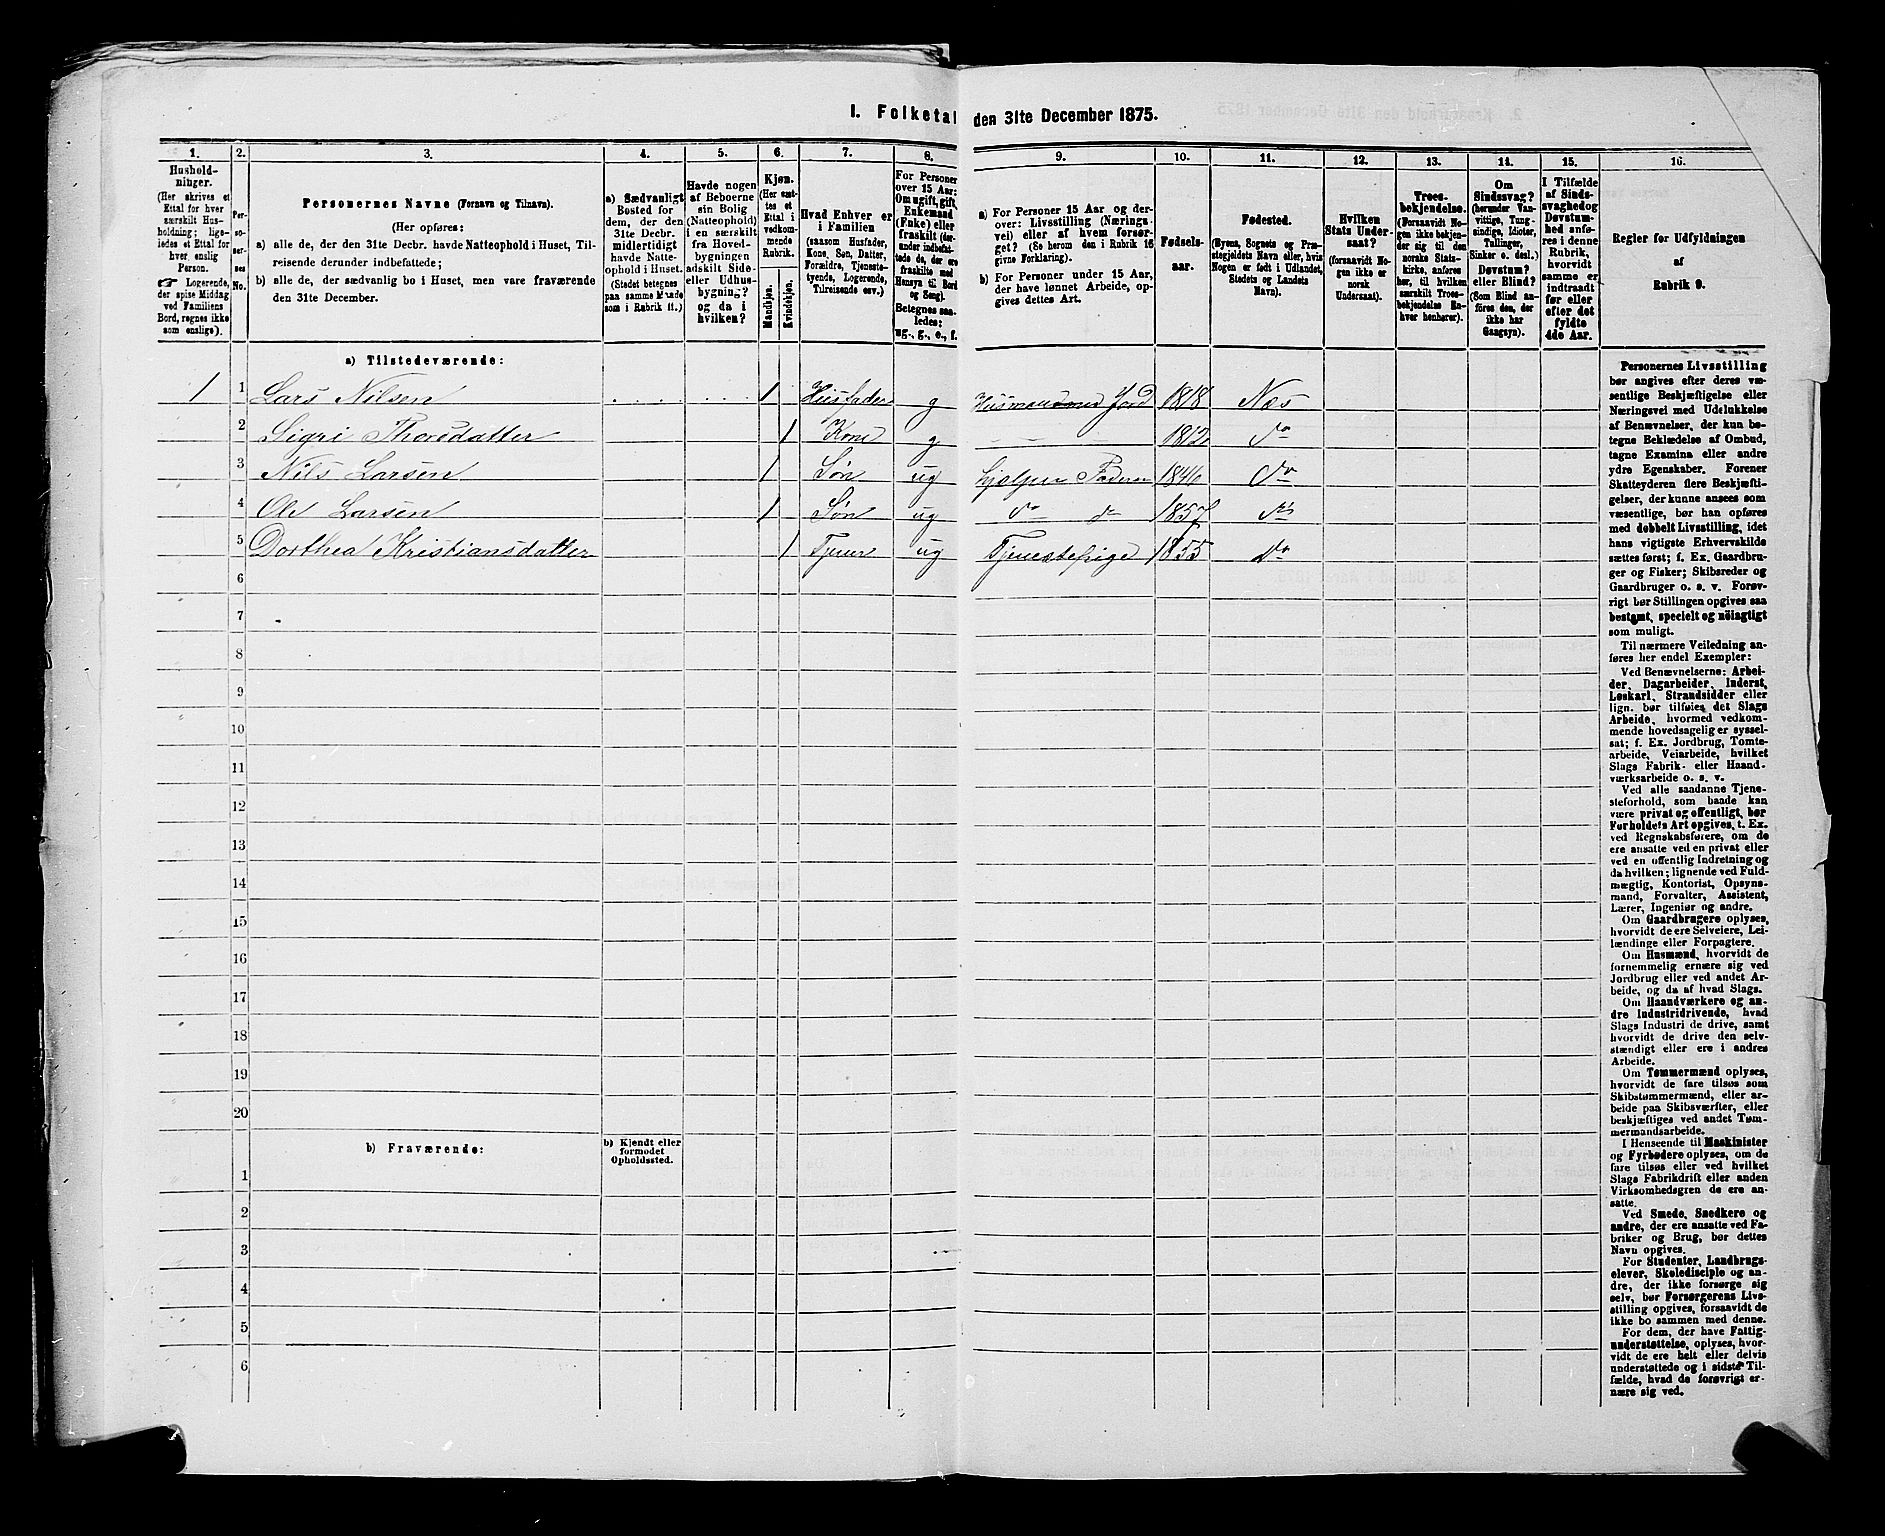 I. Folketal den 31te December 1875.
1. 2. 3. 4. 5. 6. 7. 8. 9. 10. 11. 12. 13. 14. 15. 16.
Hushold-
ninger.
(Her skrives et
Ettal for hver
særskilt Hus-
holdning; lige-
ledes et Ettal for
hver enslig
Person.
☞ Logerende,
der spise Middag
ved Familiens
Bord, regnes ikke
som enslige).
Per-
so-
ner-
nes
No.
Personernes Navne (Fornavn og Tilnavn).
(Her opføres:
a) alle de, der den 31te Decbr. havde Natteophold i Huset, Til-
reisende derunder indbefattede;
b) alle de, der sædvanlig bo i Huset, men vare fraværende
den 31te December.
a) Sædvanligt
Bosted for
dem, der den
31te Decbr.
midlertidigt
havde Natte-
ophold i Huset.
(Stedet betegnes
paa samme Maade
som i Rubrik 11.)
Havde nogen
af Beboerne
sin Bolig
(Natteophold)
i en særskilt
fra Hoved-
bygningen
adskilt Side-
eller Udhus-
bygning?
og da i
hvilken?
Kjøn.
(Her sæt-
tes et
Ettal i
vedkom-
mende
Rubrik.
Mandkjøn.
Kvindekjøn.
Hvad Enhver er
i Familien
(saasom Husfader,
Kone, Søn, Datter,
Forældre, Tjeneste-
tyende, Logerende,
Tilreisende osv.)
For Personer
over 15 Aar:
Om ugift, gift,
Enkemand
(Enke) eller
fraskilt (der-
under indbefat-
tede de, der ere
fraskilte med
Hensyn til Bord
og Seng).
Betegnes saa-
ledes:
ug., g., e., f.
a) For Personer 15 Aar og der-
over: Livsstilling (Nærings-
vei) eller af hvem forsør-
get? (Se herom den i Rubrik 16
givne Forklaring).
b) For Personer under 15 Aar,
der have lønnet Arbeide, op-
gives dettes Art.
Fødsels-
aar.
Fødested.
(Byens, Sognets og Præ-
stegjeldets Navn eller, hvis
Nogen er født i Udlandet,
Stedets og Landets
Navn).
Hvilken
Stats Under-
saat?
(forsaavidt No-
gen ikke er
norsk
Undersaat).
Troes-
bekjendelse.
(Forsaavidt No-
gen ikke bekjen-
der sig til den
norske Stats-
kirke, anføres
her, til hvilken
særskilt Troes-
bekjendelse En-
hver henhører).
Om
Sindssvag?
(herunder Van-
vittige, Tung-
sindige, Idioter,
Tullinger,
Sinker o. desl.)
Døvstum?
eller Blind?
(Som Blind an-
føres den, der
ikke har
Gangsyn).
I Tilfælde
af Sinds-
svaghed og
Døvstum-
hed anfø-
res i denne
Rubrik,
hvorvidt
samme er
indtraadt
før eller
efter det
fyldte
4de Aar.
Regler for Udfyldningen
af
Rubrik 9.
a) Tilstedeværende:
1 1 Lars Nilsen 1 Husfader g Husmand med Jord 1818 Næs
2 Sigri Thorsdatter 1 Kone g — — 1812 do
3 Nils Larsen 1 Søn ug hjælper Faderen 1846 do
4 Ole Larsen 1 Søn ug do do 1857 do
5 Dorthea Kristiansdatter 1 Tjener ug Tjenestepige 1855 do
6
7
8
9
10
11
12
13
14
15
16
17
18
19
20
b) Fraværende:
b) Kjendt eller
formodet
Opholdssted.
1
2
3
4
5
6
Personernes Livsstilling
bør angives efter deres væ-
sentlige Beskjæftigelse eller
Næringsvei med Udelukkelse
af Benævnelser, der kun be-
tegne Beklædelse af Ombud,
tagne Examina eller andre
ydre Egenskaber. Forener
Skatteyderen flere Beskjæfti-
gelser, der kunne ansees som
væsentlige, bør han opføres
med dobbelt Livsstilling, idet
hans vigtigste Erhvervskilde
sættes først; f. Ex. Gaardbru-
ger og Fisker; Skibsreder og
Gaardbruger o. s. v. Forøv-
rigt bør Stillingen opgives saa
bestemt, specielt og nöiagtigt
som muligt.
Til nærmere Veiledning an-
føres her endel Exempler:
Ved Benævnelserne: Arbei-
der, Dagarbeider, Inderst,
Løskarl, Strandsidder eller
lign. bør tilføies det Slags
Arbeide, hvormed vedkom-
mende hovedsagelig er syssel-
sat; f. Ex. Jordbrug, Tomte-
arbeide, Veiarbeide, hvilket
Slags Fabrik- eller Haand-
værksarbeide o. s. v.
Ved alle saadanne Tjene-
steforhold, som baade kan
være privat og offentligt, bør
Forholdets Art opgives, t. Ex.
ved Regnskabsførere, om de
ere ansatte ved en privat eller
ved en offentlig Indretning og
da hvilken; lignende ved Fuld-
mægtig, Kontorist, Opsyns-
mand, Forvalter, Assistent,
Lærer, Ingeniør og andre.
Om Gaardbrugere oplyses,
hvorvidt de ere Selveiere, Lei-
lændinge eller Forpagtere.
Om Husmænd, hvorvidt de
fornemmelig ernære sig ved
Jordbrug eller ved andet Ar-
beide, og da af hvad Slags.
Om Haandværkere og an-
dre Industridrivende, hvad
Slags Industri de drive, samt
hvorvidt de drive den selv-
stændigt eller ere i andres
Arbeide.
Om Tømmermænd oplyses,
hvorvidt de fare tilsøs som
Skibstømmermænd, eller ar-
beide paa Skibsværfter, eller
beskjæftiges ved andet Tøm-
mermandsarbeide.
I Henseende til Maskinister
og Fyrbødere oplyses, om de
fare tilsøs eller ved hvilket
Slags Fabrikdrift eller anden
Virksomhedsgren de ere an-
satte.
Ved Smede, Snedkere og
andre, der ere ansatte ved Fa-
briker og Brug, bør dettes
Navn opgives.
For Studenter, Landbrugs-
elever, Skoledisciple og an-
dre, der ikke forsørge sig
selv, bør Forsørgerens Livs-
stilling opgives, forsaavidt de
ikke bo sammen med denne.
For dem, der have Fattig-
understøttelse, oplyses, hvor-
vidt de ere helt eller delvis
understøttede og i sidste Til-
fælde, hvad de forøvrigt er-
nære sig ved.